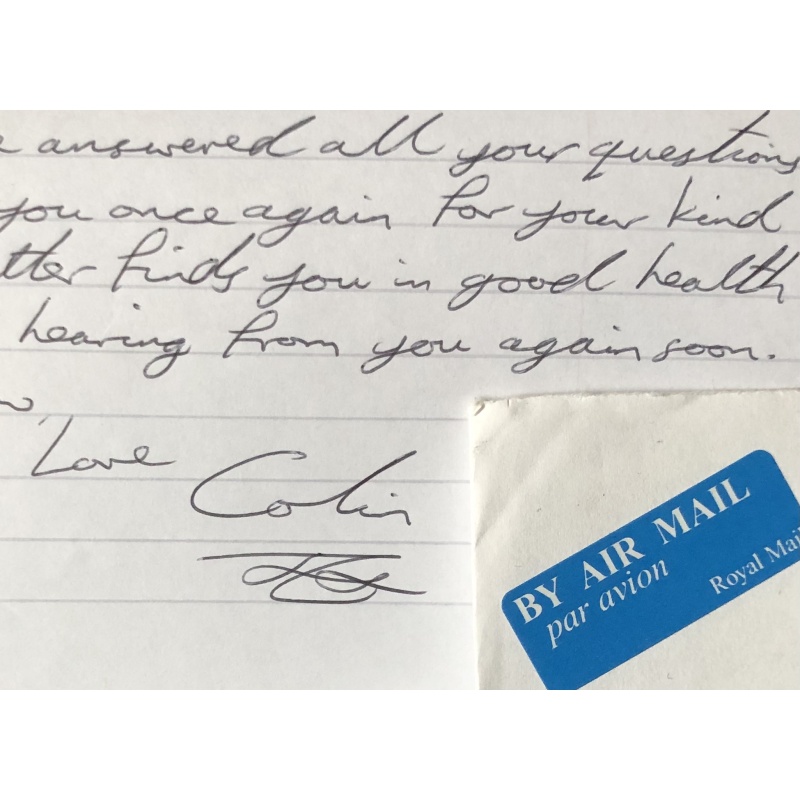 answered all your questions
you once again for your kind
tter finds you in good health
hearing from you again soon.
Love
Colin
BY AIR MAIL
par avion
Royal Mai